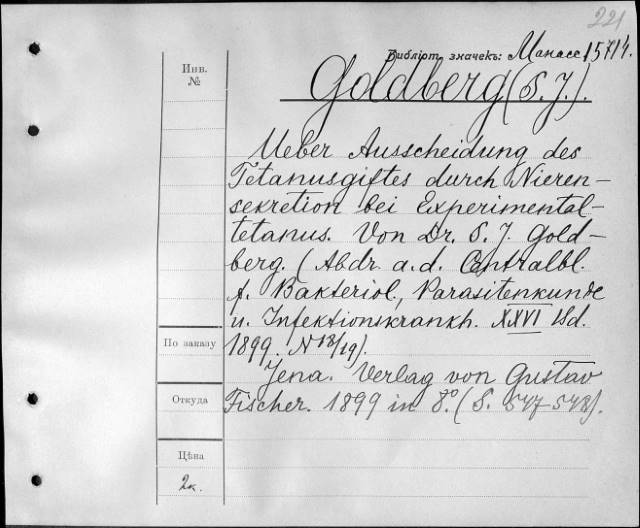 221
Библіот. значекъ: Манассе 15714.
Инв.
№
Goldberg (S. J.).
Ueber Ausscheidung des
Tetanusgiftes durch Nieren-
sekretion bei Experimental-
tetanus. Von Dr. S. J. Gold-
berg. (Abdr. a. d. Centralbl.
f. Bakteriol., Parasitenkunde
u. Infektionskrankh. XXVI Bd.
1899. N 18/19).
По заказу
Jena. Verlag von Gustav
Откуда
Fischer. 1899 in 8.º (S. 547-548).
Цѣна
2к.